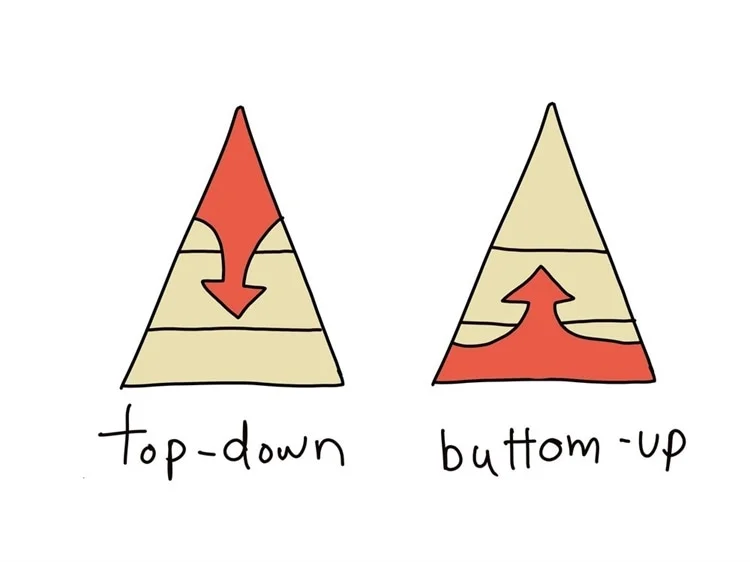 top-down
buttom-up